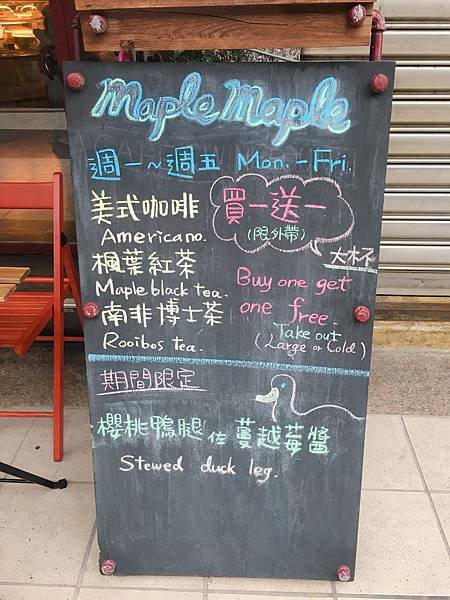 Maple Maple
週一～週五 Mon.-Fri.
美式咖啡
Americano.
楓葉紅茶
Maple black tea.
南非博士茶
Rooibos tea.
買一送一
(限外帶)
大杯
Buy one get
one free.
Take out
(Large or Cold)
期間限定
櫻桃鴨腿佐蔓越莓醬
Stewed duck leg.